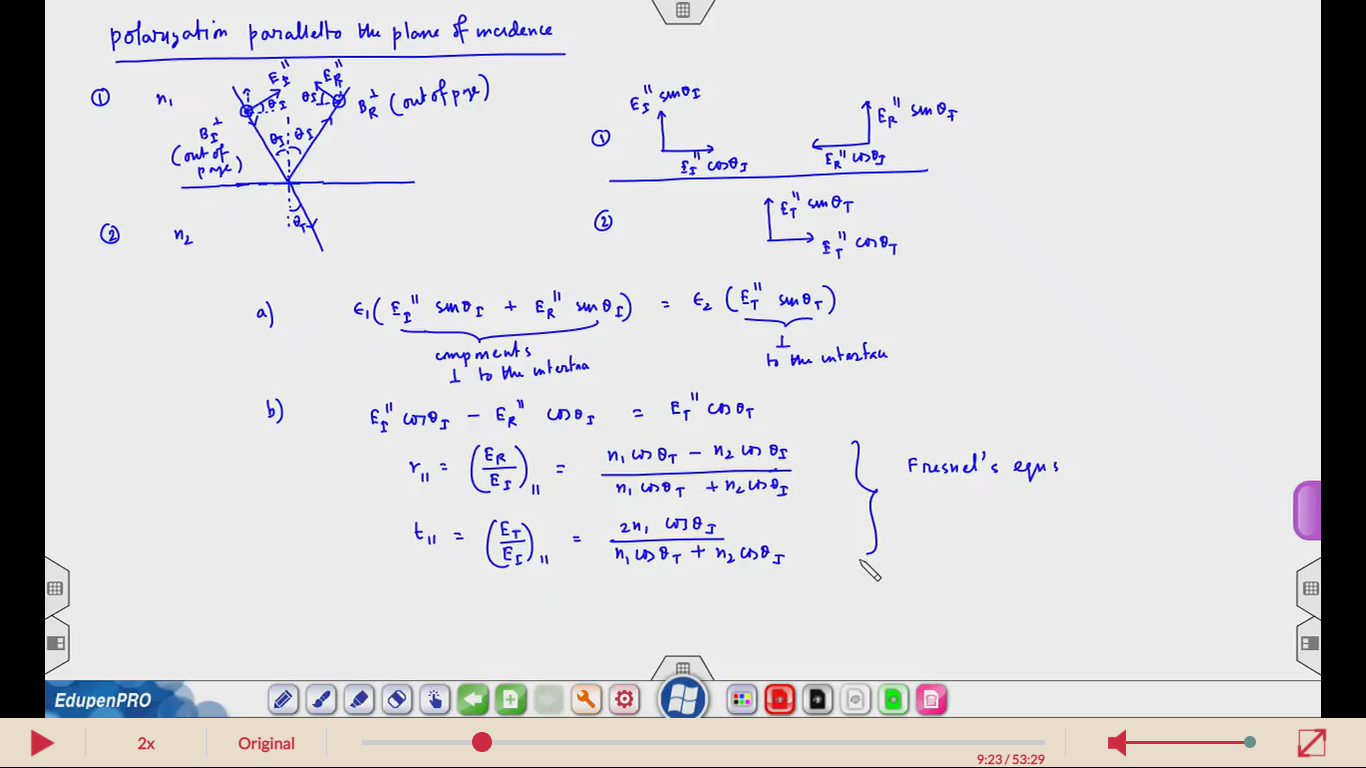 polarization parallel to the plane of incidence
① n₁ E_I^∥ E_R^∥ θ_I θ_I B_R^⊥ (out of page)
B_I^⊥ (out of page) θ_I θ_I
② n₂ θ_T
E_I^∥ sinθ_I E_R^∥ sinθ_I
① E_I^∥ cosθ_I E_R^∥ cosθ_I
② E_T^∥ sinθ_T
E_T^∥ cosθ_T
a) ϵ₁(E_I^∥ sinθ_I + E_R^∥ sinθ_I) = ϵ₂(E_T^∥ sinθ_T)
components ⊥
⊥ to the interface to the interface
b) E_I^∥ cosθ_I - E_R^∥ cosθ_I = E_T^∥ cosθ_T
r_∥ = (E_R/E_I)_∥ = (n₁ cosθ_T - n₂ cosθ_I)/(n₁ cosθ_T + n₂ cosθ_I) Fresnel's eqns
t_∥ = (E_T/E_I)_∥ = (2n₁ cosθ_I)/(n₁ cosθ_T + n₂ cosθ_I)
EdupenPRO
2x Original 9:23 / 53:29